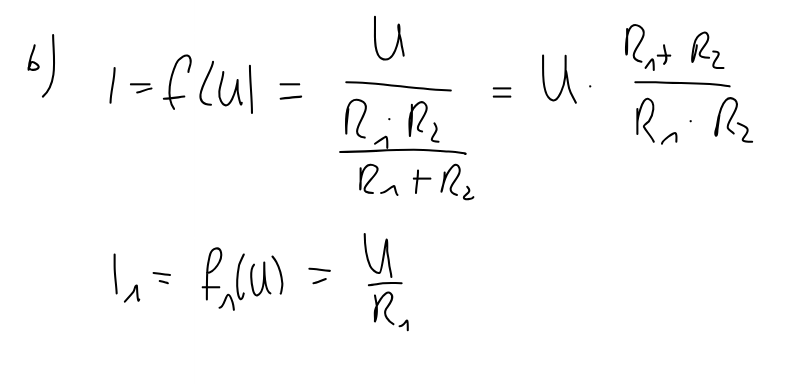 b) I = f(U) = U / (R₁ · R₂ / (R₁ + R₂)) = U · (R₁ + R₂) / (R₁ · R₂)
I₁ = f₁(U) = U / R₁